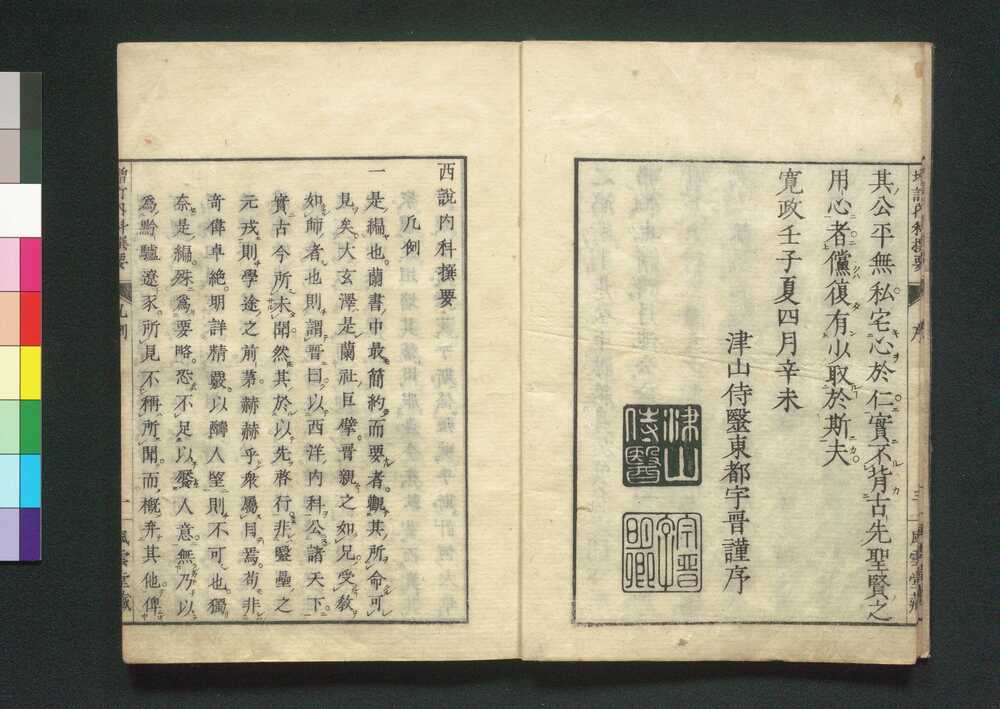 其公平無私宅心於仁實不背古先聖賢之
用心者儻復有少取於斯夫
寛政壬子夏四月辛未
津山侍毉東都宇晋謹序
津山
侍醫
宇晋
西說內科撰要
凡例
一是編也蘭書中最簡約而要者觀其所命可
見矣大玄澤是蘭社巨擘晋親之如兄受敎
如師者也則謂晋曰以西洋內科公諸天下
實古今所未聞然其於以先啓行非毉壘之
元戎則學途之前茅赫赫乎衆屬目焉苟非
奇偉卓絶明詳精覈以饜人望則不可也獨
奈是編殊爲要略恐不足以饜人意無乃以
爲黔驢遼豕所見不稱所聞而槪弃其他俾
增訂內科撰要
凡例
一
風雲堂藏